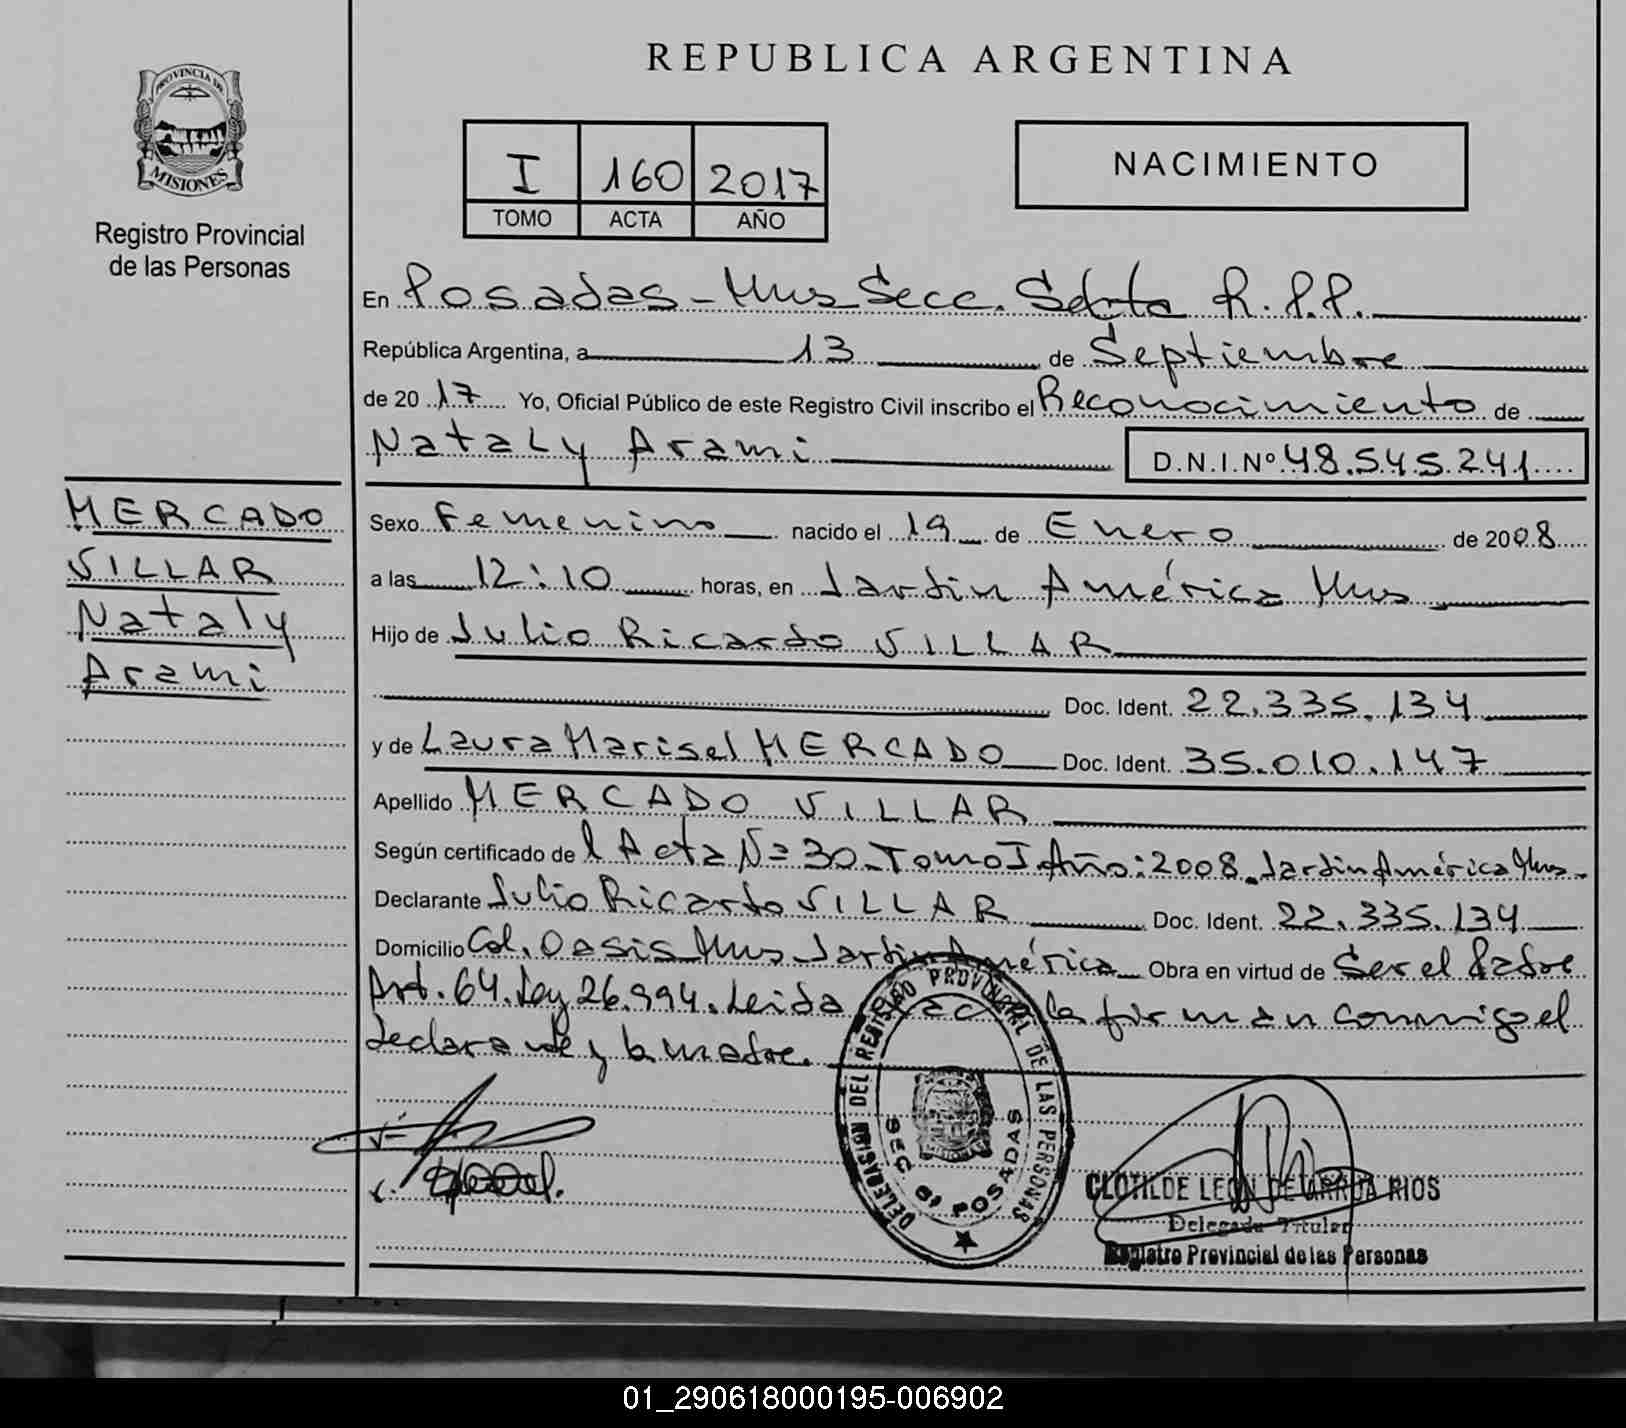 PROVINCIA DE
MISIONES
Registro Provincial
de las Personas
MERCADO
VILLAR
Nataly
Arami
REPUBLICA ARGENTINA
I 160 2017
TOMO ACTA AÑO
NACIMIENTO
En Posadas - Mnes Secc. Sexta R.P.P.
República Argentina, a 13 de Septiembre
de 2017 Yo, Oficial Público de este Registro Civil inscribo el Reconocimiento de
Nataly Arami D.N.I.Nº 48.545.241
Sexo Femenino nacido el 19 de Enero de 2008
a las 12:10 horas, en Jardin América Mnes
Hijo de Julio Ricardo VILLAR
Doc. Ident. 22.335.134
y de Laura Marisel MERCADO Doc. Ident. 35.010.147
Apellido MERCADO VILLAR
Según certificado del Acta Nº 30 - Tomo I Año: 2008 - Jardin América Mnes -
Declarante Julio Ricardo VILLAR Doc. Ident. 22.335.134
Domicilio Col. Oasis Mnes Jardin América Obra en virtud de Ser el Padre
Art. 64. Ley 26.994. Leida Acta la firman conmigo el
declarante y la madre.
DELEGACION DEL REGISTRO PROVINCIAL DE LAS PERSONAS
SEC 6ª POSADAS
CLOTILDE LEON DE ARRUA RIOS
Delegada Titular
Registro Provincial de las Personas
01_290618000195-006902